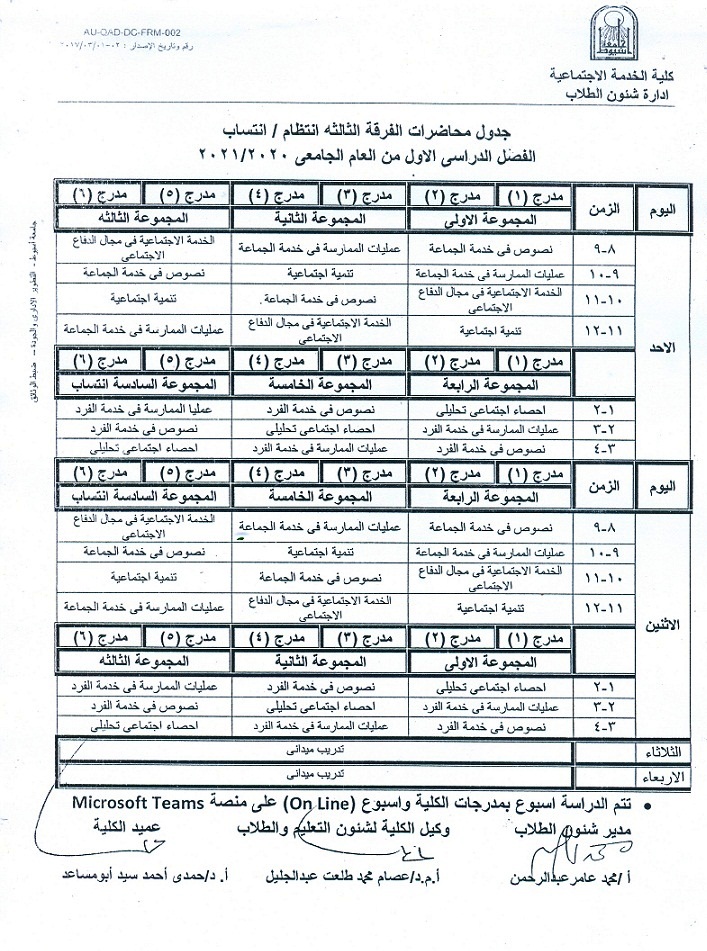 AU-QAD-DC-FRM-002
رقم وتاريخ الإصدار : ٠٢-٢٠١٧/٠٣/٠١
جامعة أسيوط
كلية الخدمة الاجتماعية
ادارة شئون الطلاب
جدول محاضرات الفرقة الثالثه انتظام / انتساب
الفصل الدراسى الاول من العام الجامعى ٢٠٢١/٢٠٢٠
اليوم الزمن مدرج (١) مدرج (٢) مدرج (٣) مدرج (٤) مدرج (٥) مدرج (٦)
المجموعة الاولى المجموعة الثانية المجموعة الثالثه
الاحد
٨-٩ نصوص فى خدمة الجماعة عمليات الممارسة فى خدمة الجماعة الخدمة الاجتماعية فى مجال الدفاع الاجتماعى
٩-١٠ عمليات الممارسة فى خدمة الجماعة تنمية اجتماعية نصوص فى خدمة الجماعة
١٠-١١ الخدمة الاجتماعية فى مجال الدفاع الاجتماعى نصوص فى خدمة الجماعة . تنمية اجتماعية
١١-١٢ تنمية اجتماعية الخدمة الاجتماعية فى مجال الدفاع الاجتماعى عمليات الممارسة فى خدمة الجماعة
مدرج (١) مدرج (٢) مدرج (٣) مدرج (٤) مدرج (٥) مدرج (٦)
المجموعة الرابعة المجموعة الخامسة المجموعة السادسة انتساب
١-٢ احصاء اجتماعى تحليلى نصوص فى خدمة الفرد عمليا الممارسة فى خدمة الفرد
٢-٣ عمليات الممارسة فى خدمة الفرد احصاء اجتماعى تحليلى نصوص فى خدمة الفرد
٣-٤ نصوص فى خدمة الفرد عمليات الممارسة فى خدمة الفرد احصاء اجتماعى تحليلى
اليوم الزمن مدرج (١) مدرج (٢) مدرج (٣) مدرج (٤) مدرج (٥) مدرج (٦)
المجموعة الرابعة المجموعة الخامسة المجموعة السادسة انتساب
الاثنين
٨-٩ نصوص فى خدمة الجماعة عمليات الممارسة فى خدمة الجماعة الخدمة الاجتماعية فى مجال الدفاع الاجتماعى
٩-١٠ عمليات الممارسة فى خدمة الجماعة تنمية اجتماعية نصوص فى خدمة الجماعة
١٠-١١ الخدمة الاجتماعية فى مجال الدفاع الاجتماعى نصوص فى خدمة الجماعة تنمية اجتماعية
١١-١٢ تنمية اجتماعية الخدمة الاجتماعية فى مجال الدفاع الاجتماعى عمليات الممارسة فى خدمة الجماعة
مدرج (١) مدرج (٢) مدرج (٣) مدرج (٤) مدرج (٥) مدرج (٦)
المجموعة الاولى المجموعة الثانية المجموعة الثالثه
١-٢ احصاء اجتماعى تحليلى نصوص فى خدمة الفرد عمليات الممارسة فى خدمة الفرد
٢-٣ عمليات الممارسة فى خدمة الفرد احصاء اجتماعى تحليلى نصوص فى خدمة الفرد
٣-٤ نصوص فى خدمة الفرد عمليات الممارسة فى خدمة الفرد احصاء اجتماعى تحليلى
الثلاثاء تدريب ميدانى
الاربعاء تدريب ميدانى
• تتم الدراسة اسبوع بمدرجات الكلية واسبوع (On Line) على منصة Microsoft Teams
مدير شئون الطلاب وكيل الكلية لشئون التعليم والطلاب عميد الكلية
أ /محمد عامر عبدالرحمن أ.م.د/عصام محمد طلعت عبدالجليل أ. د/حمدى أحمد سيد أبومساعد
جامعة أسيوط - التطوير الادارى والجودة – ضبط الوثائق